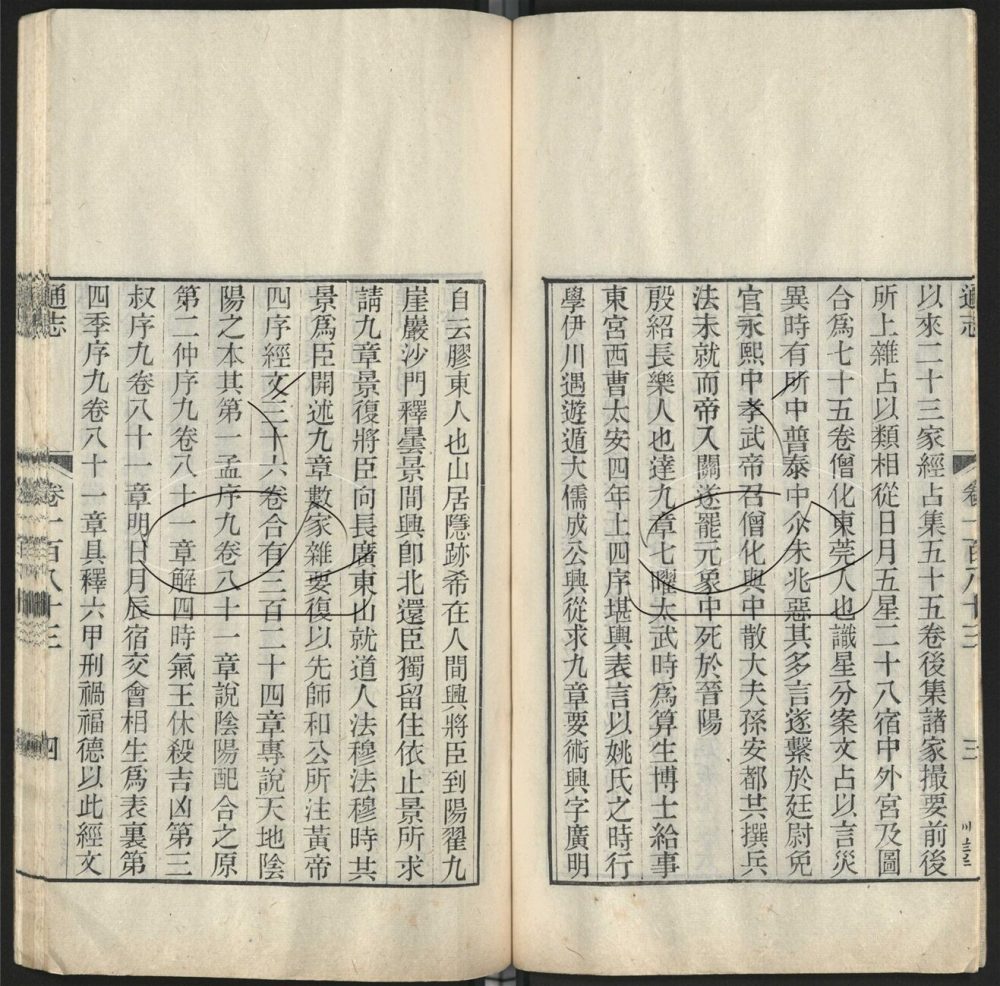 通志
卷一百八十三
三
以來二十三家經占集五十五卷後集諸家撮要前後
所上雜占以類相從日月五星二十八宿中外宮及圖
合爲七十五卷僧化東莞人也識星分案文占以言災
異時有所中普泰中尒朱兆惡其多言遂繫於廷尉免
官永熙中孝武帝召僧化與中散大夫孫安都共撰兵
法未就而帝入關遂罷元象中死於晉陽
殷紹長樂人也達九章七曜太武時爲算生博士給事
東宮西曹太安四年上四序堪輿表言以姚氏之時行
學伊川遇遊遁大儒成公興從求九章要術興字廣明
自云膠東人也山居隱跡希在人間興將臣到陽翟九
崖巖沙門釋曇景間興卽北還臣獨留住依止景所求
請九章景復將臣向長廣東山就道人法穆法穆時共
景爲臣開述九章數家雜要復以先師和公所注黃帝
四序經文三十六卷合有三百二十四章專說天地陰
陽之本其第一孟序九卷八十一章說陰陽配合之原
第二仲序九卷八十一章解四時氣王休殺吉凶第三
叔序九卷八十一章明日月辰宿交會相生爲表裏第
四季序九卷八十一章具釋六甲刑禍福德以此經文
通志
卷一百八十三
四